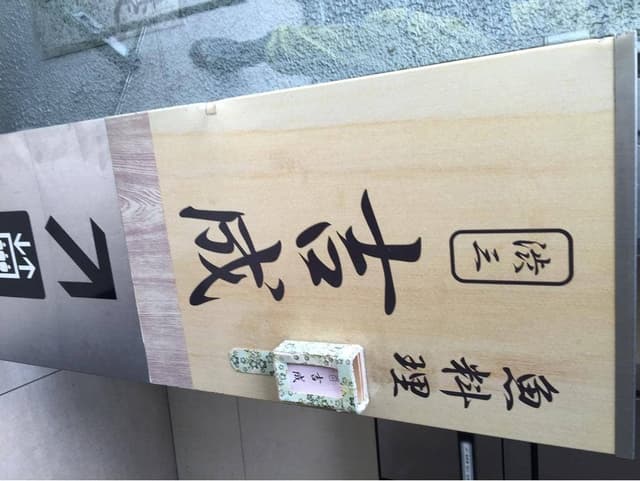 魚料理
渋三
吉成
吉成